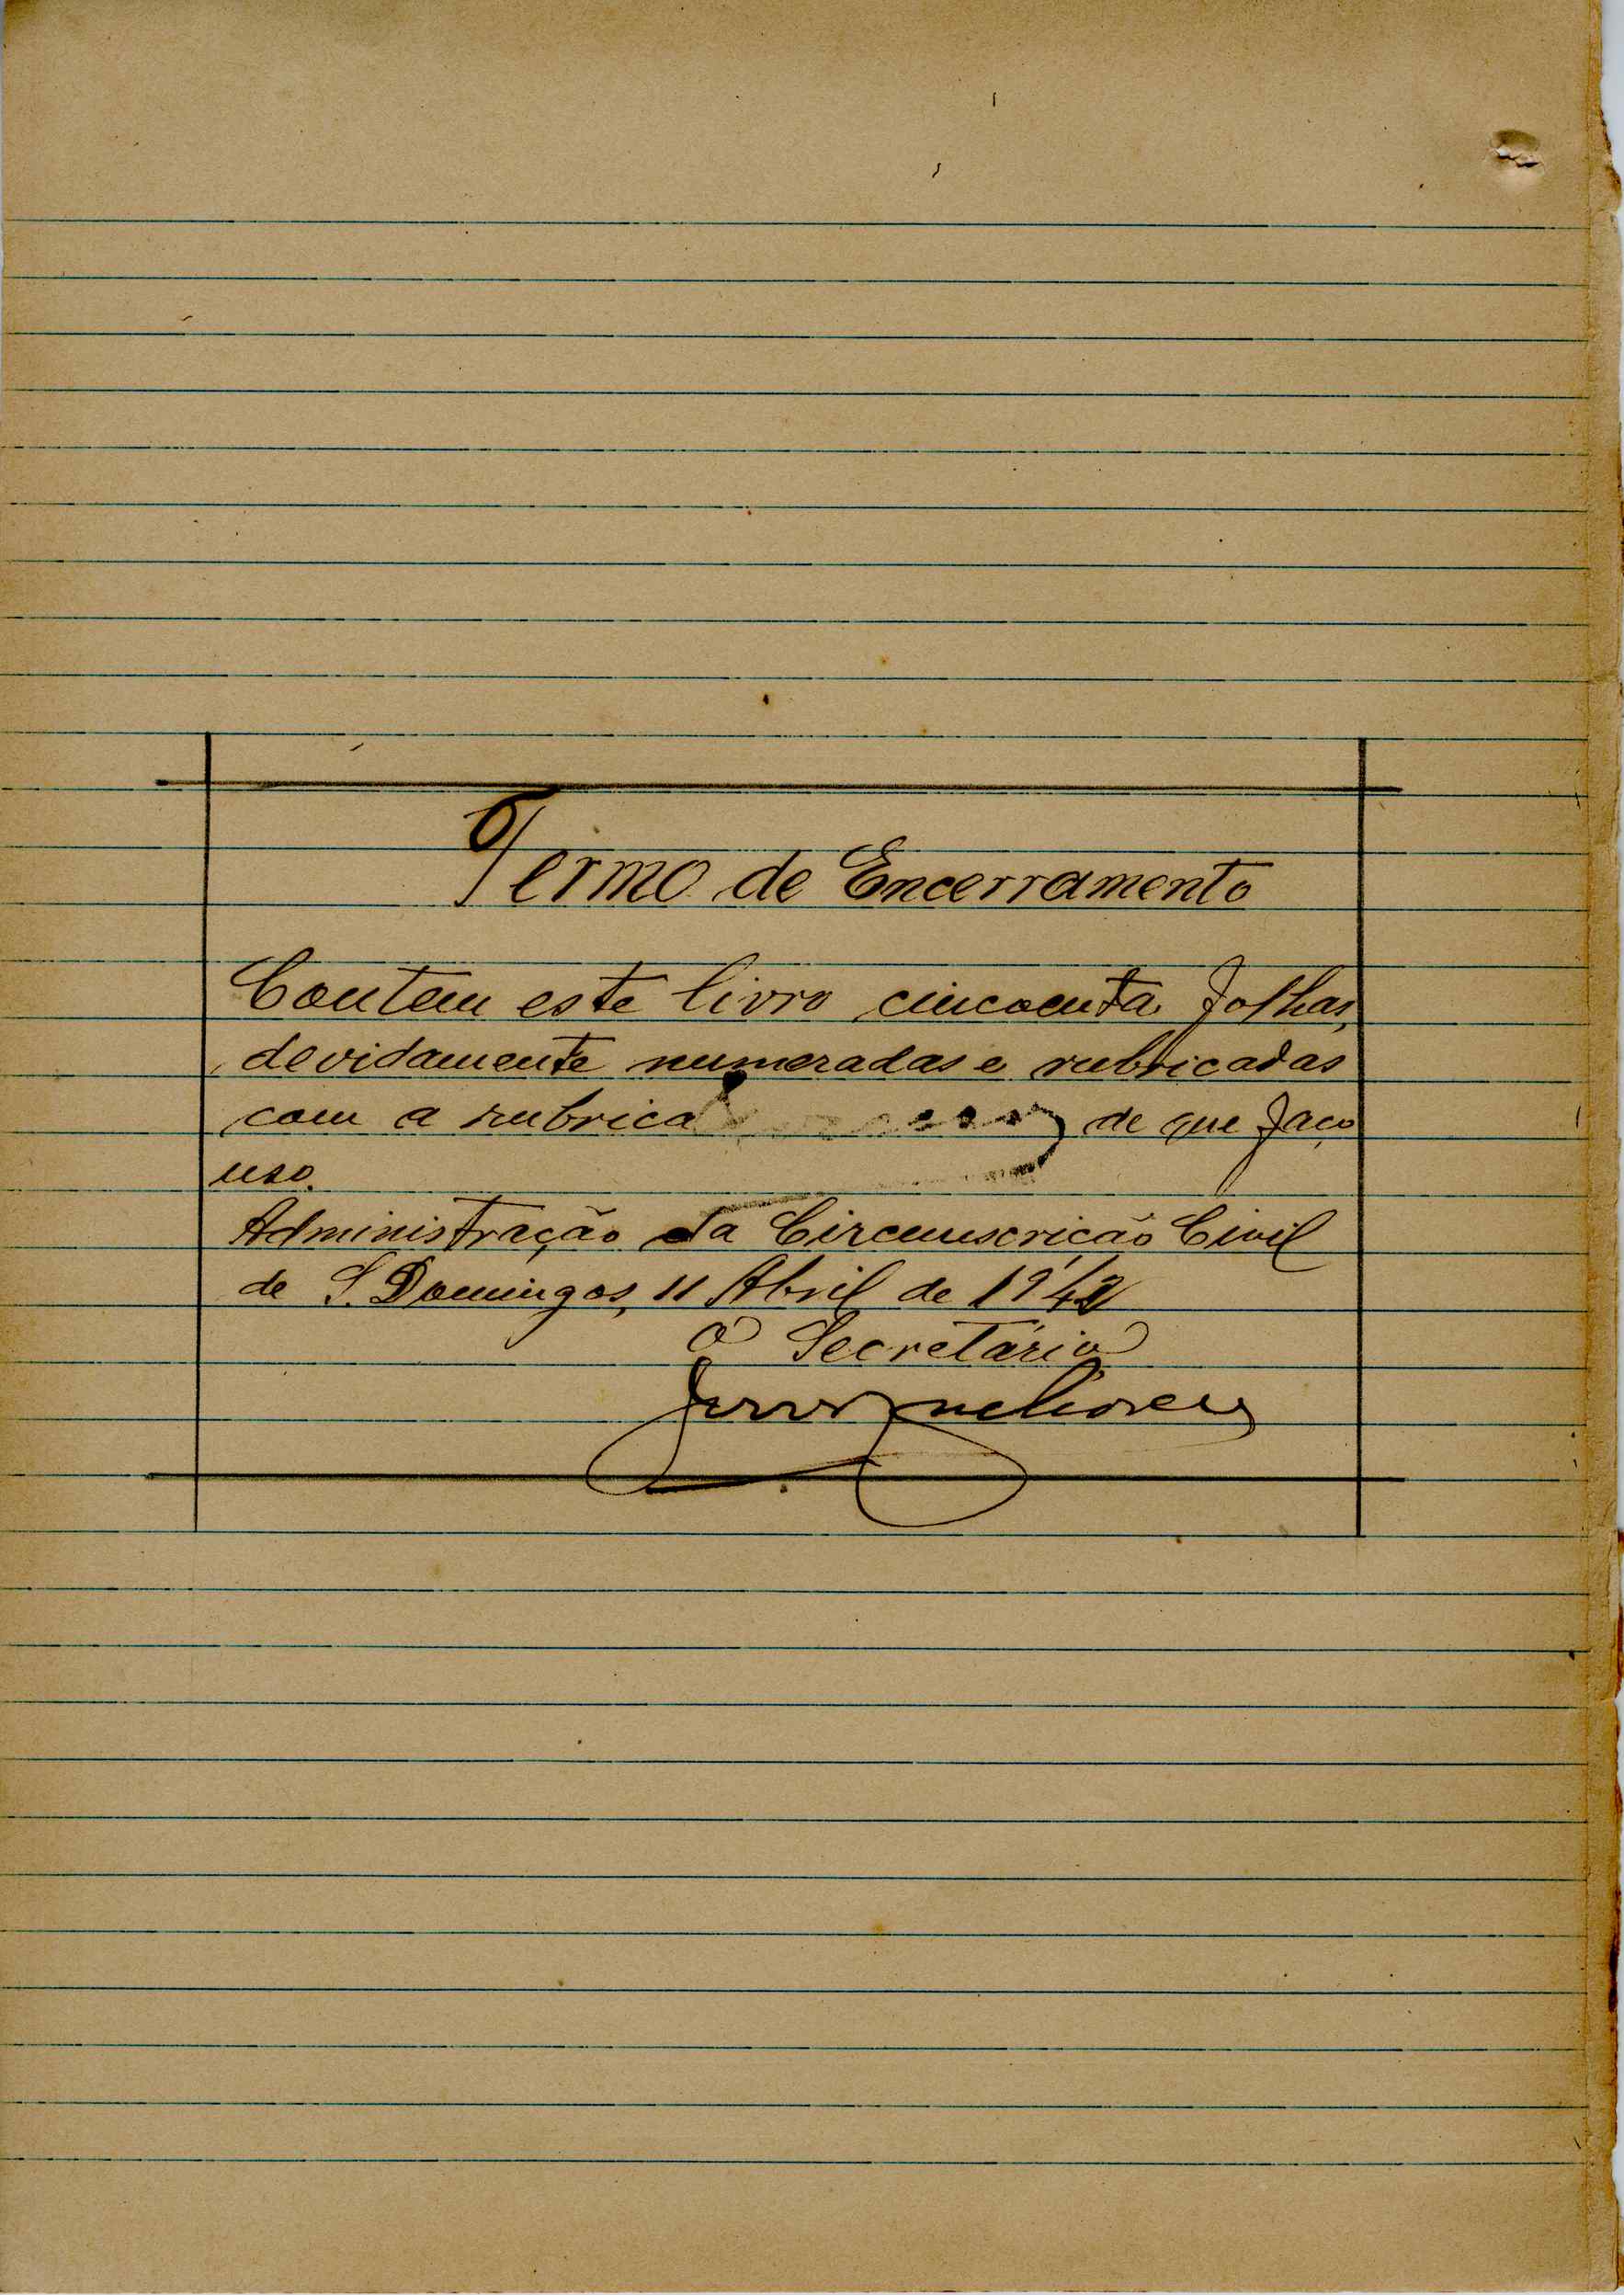 Termo de Encerramento
Contem este livro cincoenta folhas,
devidamente numeradas e rubricadas
com a rubrica de que faço
uso.
Administração da Circunscrição Civil
de S. Domingos, 11 Abril de 1942
O Secretário